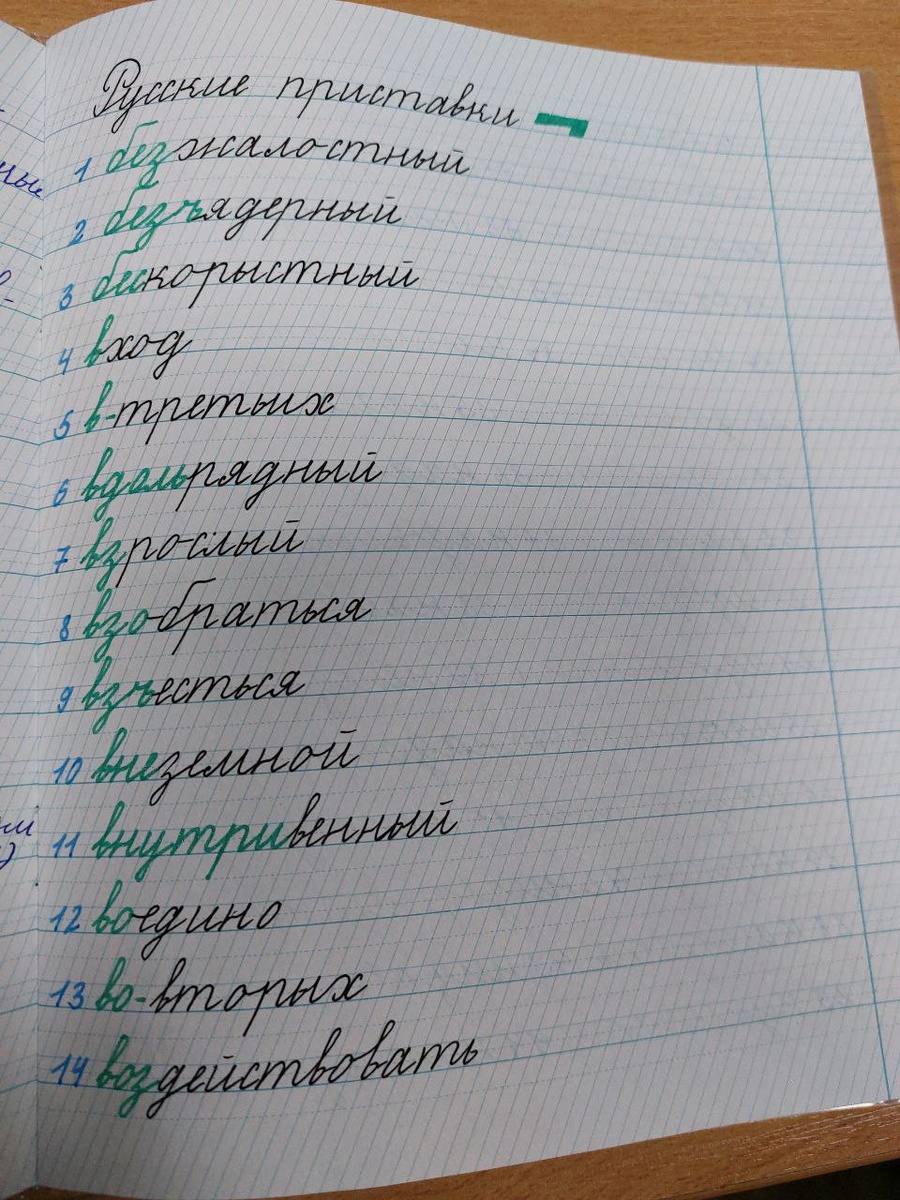 Русские приставки
1 безжалостный
2 безъядерный
3 бескорыстный
4 вход
5 в-третьих
6 вдольрядный
7 взрослый
8 взобраться
9 взъесться
10 внеземной
11 внутривенный
12 воедино
13 во-вторых
14 воздействовать